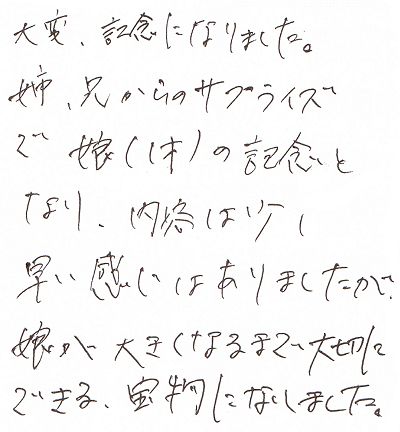 大変、記念になりました。
姉、兄からのサプライズ
で 娘(1才)の記念と
なり、内容は少し
早い感じはありましたが、
娘が大きくなるまで大切に
できる、宝物になりました。